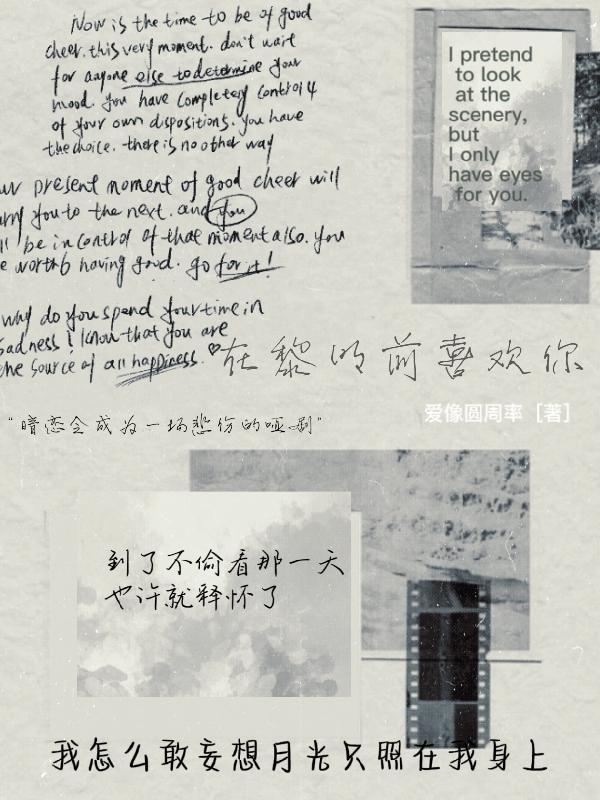 Now is the time to be of good
cheer. this very moment. don't wait
for anyone else to determine your
mood. you have completely control 4
of your own dispositions. you have
the choice. there is no other way
ur present moment of good cheer will
arry you to the next. and you
ll be in control of that moment also. you
e worth6 having good. go for it!
why do you spend your time in
sadness! know that you are
the source of all happiness.
I pretend
to look
at the
scenery,
but
I only
have eyes
for you.
在黎明前喜欢你
爱像圆周率 [著]
"暗恋会成为一场悲伤的哑剧"
到了不偷看那一天
也许就释怀了
我怎么敢妄想月光只照在我身上